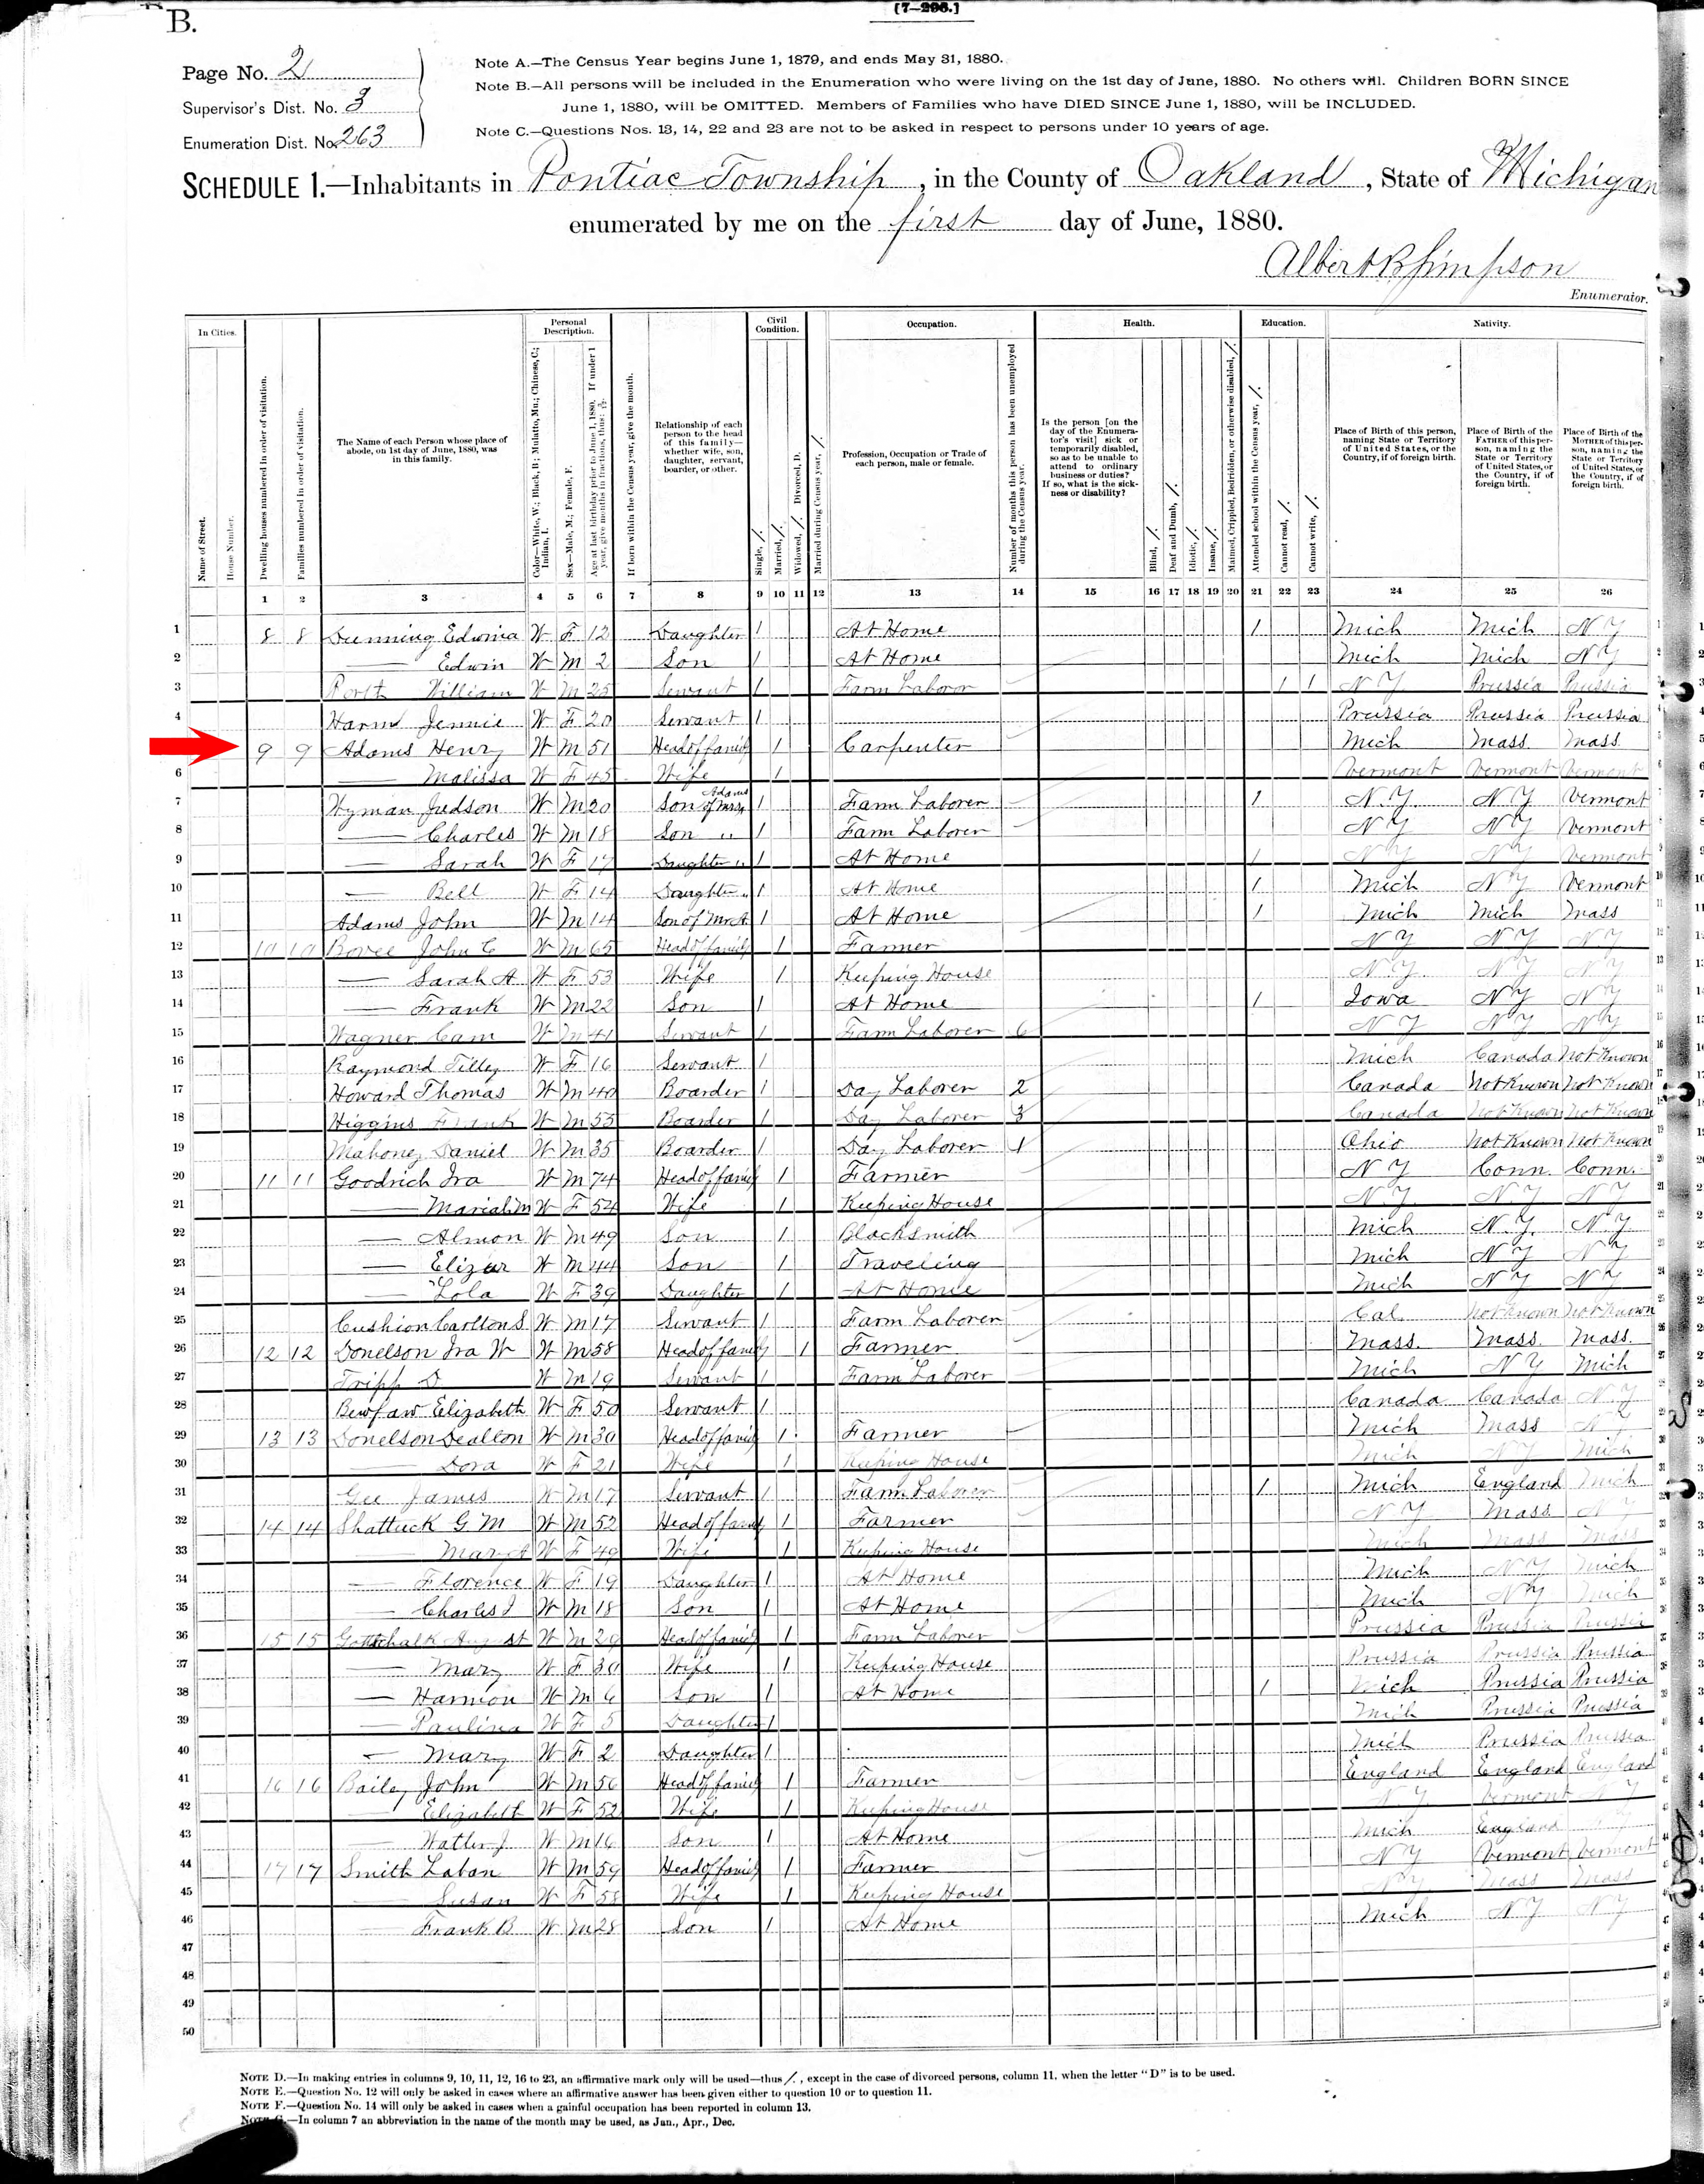 B.
[7-296.]
Page No. 2
Supervisor's Dist. No. 3
Enumeration Dist. No. 263
Note A.—The Census Year begins June 1, 1879, and ends May 31, 1880.
Note B.—All persons will be included in the Enumeration who were living on the 1st day of June, 1880. No others will. Children BORN SINCE
June 1, 1880, will be OMITTED. Members of Families who have DIED SINCE June 1, 1880, will be INCLUDED.
Note C.—Questions Nos. 13, 14, 22 and 23 are not to be asked in respect to persons under 10 years of age.
SCHEDULE 1.—Inhabitants in Pontiac Township, in the County of Oakland, State of Michigan
enumerated by me on the first day of June, 1880.
Albert B Simpson
Enumerator.
In Cities. Personal Description. Civil Condition. Occupation. Health. Education. Nativity.
Name of Street.
House Number.
Dwelling houses numbered in order of visitation.
Families numbered in order of visitation.
The Name of each Person whose place of abode, on 1st day of June, 1880, was in this family.
Color—White, W.; Black, B.; Mulatto, Mu.; Chinese, C.; Indian, I.
Sex—Male, M.; Female, F.
Age at last birthday prior to June 1, 1880. If under 1 year, give months in fractions, thus: 3/12.
If born within the Census year, give the month.
Relationship of each person to the head of this family—whether wife, son, daughter, servant, boarder, or other.
Single, /.
Married, /.
Widowed, /. Divorced, D.
Married during Census year, /.
Profession, Occupation or Trade of each person, male or female.
Number of months this person has been unemployed during the Census year.
Is the person [on the day of the Enumerator's visit] sick or temporarily disabled, so as to be unable to attend to ordinary business or duties? If so, what is the sickness or disability?
Blind, /.
Deaf and Dumb, /.
Idiotic, /.
Insane, /.
Maimed, Crippled, Bedridden, or otherwise disabled, /.
Attended school within the Census year, /.
Cannot read, /.
Cannot write, /.
Place of Birth of this person, naming State or Territory of United States, or the Country, if of foreign birth.
Place of Birth of the FATHER of this person, naming the State or Territory of United States, or the Country, if of foreign birth.
Place of Birth of the MOTHER of this person, naming the State or Territory of United States, or the Country, if of foreign birth.
1 2 3 4 5 6 7 8 9 10 11 12 13 14 15 16 17 18 19 20 21 22 23 24 25 26
1 8 8 Dunning Edwina W F 12 Daughter 1 At Home 1 Mich Mich N Y
2 — Edwin W M 2 Son 1 At Home Mich Mich N Y
3 William W M 25 Servant 1 Farm Laboror 1 1 N Y Prussia Prussia
4 Jennie W F 20 Servant 1 Prussia Prussia Prussia
5 9 9 Adams Henry W M 51 Head of family 1 Carpenter Mich Mass. Mass.
6 — Malissa W F 45 Wife 1 Vermont Vermont Vermont
7 Wyman Judson W M 20 Son of Mrs Adams 1 Farm Laborer 1 N. Y N Y Vermont
8 — Charles W M 18 Son " 1 Farm Laborer N Y N Y Vermont
9 — Sarah W F 17 Daughter " 1 At Home 1 N Y N Y Vermont
10 — Bell W F 14 Daughter " 1 At Home 1 Mich N Y Vermont
11 Adams John W M 14 Son of Mr A 1 At Home 1 Mich Mich Mass
12 10 10 Bovee John C W M 65 Head of family 1 Farmer N Y N Y N Y
13 — Sarah A W F 53 Wife 1 Keeping House N Y N Y N Y
14 — Frank W M 22 Son 1 At Home 1 Iowa N Y N Y
15 Wagner Cam W M 41 Servant 1 Farm Laborer 6 N Y N Y N Y
16 Raymond Tilley W F 16 Servant 1 Mich Canada Not Known
17 Howard Thomas W M 40 Boarder 1 Day Laborer 2 Canada Not Known Not Known
18 Higgins Frank W M 55 Boarder 1 Day Laborer 3 Canada Not Known Not Known
19 Mahoney Daniel W M 35 Boarder 1 Day Laborer 1 Ohio Not Known Not Known
20 11 11 Goodrich Ira W M 74 Head of family 1 Farmer N Y Conn. Conn.
21 — W F 54 Wife 1 Keeping House N Y N Y N Y
22 — Almon W M 49 Son 1 Blacksmith Mich N. Y. N. Y
23 — Elizar W M 44 Son 1 Traveling Mich N Y N Y
24 — Lola W F 39 Daughter 1 At Home Mich N Y N Y
25 Cushion Carlton S W M 17 Servant 1 Farm Laborer Cal. Not Known Not Known
26 12 12 Donelson Ira W W M 58 Head of family 1 Farmer Mass. Mass. Mass.
27 Tripp D W M 19 Servant 1 Farm Laborer Mich N Y Mich
28 Elizabeth W F 50 Servant 1 Canada Canada N Y
29 13 13 Donelson Dealton W M 30 Head of family 1 Farmer Mich Mass N Y
30 — Dora W F 21 Wife 1 Keeping House Mich N Y Mich
31 Gee James W M 17 Servant 1 Farm Laborer 1 Mich England Mich
32 14 14 Shattuck G M W M 52 Head of family 1 Farmer N Y Mass N Y
33 — Mary A W F 49 Wife 1 Keeping House Mich Mass Mass
34 — Florence W F 19 Daughter 1 At Home Mich N Y Mich
35 — Charles J W M 18 Son 1 At Home Mich N Y Mich
36 15 15 Gottschalk August W M 29 Head of family 1 Farm Laborer Prussia Prussia Prussia
37 — Mary W F 30 Wife 1 Keeping House Prussia Prussia Prussia
38 — Harmon W M 6 Son 1 At Home 1 Mich Prussia Prussia
39 — Paulina W F 5 Daughter 1 Mich Prussia Prussia
40 — Mary W F 2 Daughter 1 Mich Prussia Prussia
41 16 16 Bailey John W M 56 Head of family 1 Farmer England England England
42 — Elizabeth W F 52 Wife 1 Keeping House N Y Vermont N Y
43 — Walter J W M 16 Son 1 At Home Mich England
44 17 17 Smith Laban W M 59 Head of family 1 Farmer N Y Vermont Vermont
45 — Susan W F 58 Wife 1 Keeping House N Y Mass Mass
46 — Frank B W M 28 Son 1 At Home Mich N Y N Y
47
48
49
50
NOTE D.—In making entries in columns 9, 10, 11, 12, 16 to 23, an affirmative mark only will be used—thus /, except in the case of divorced persons, column 11, when the letter "D" is to be used.
NOTE E.—Question No. 12 will only be asked in cases where an affirmative answer has been given either to question 10 or to question 11.
NOTE F.—Question No. 14 will only be asked in cases when a gainful occupation has been reported in column 13.
NOTE G.—In column 7 an abbreviation in the name of the month may be used, as Jan., Apr., Dec.